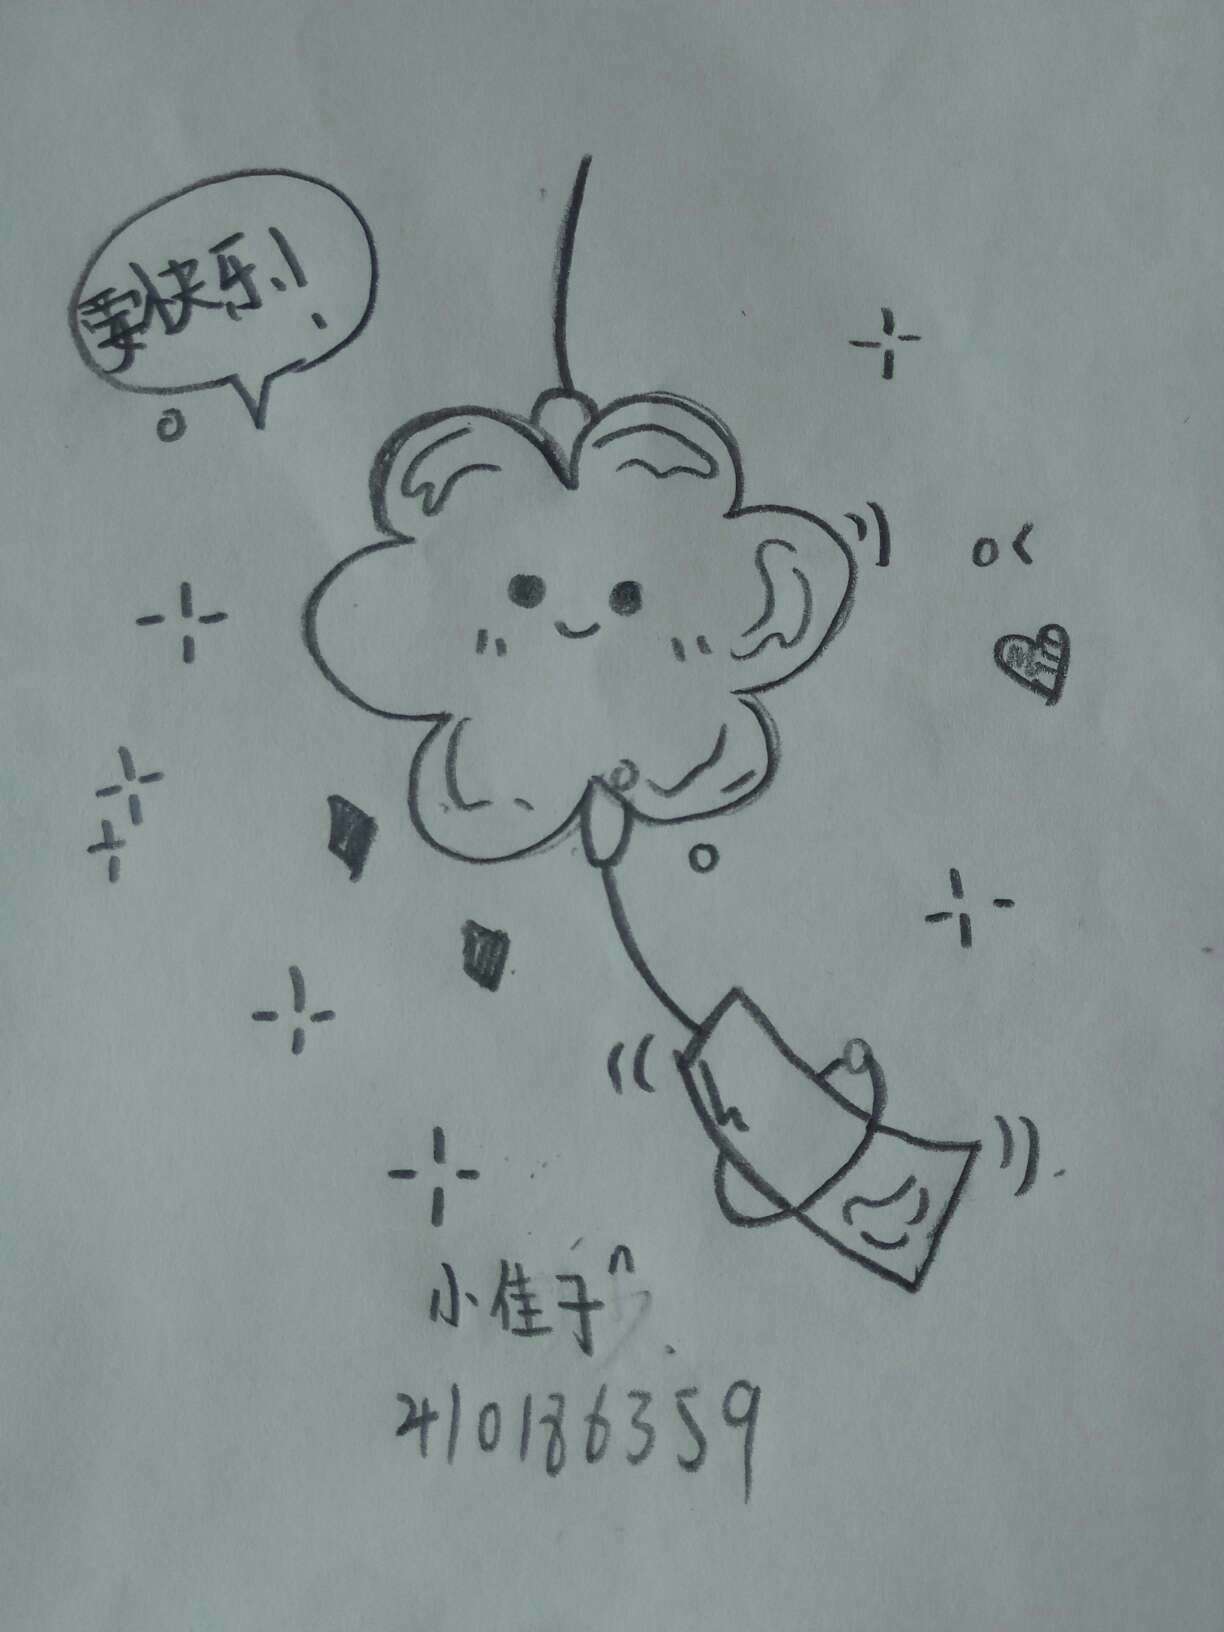 要快乐!
小佳子
410186359